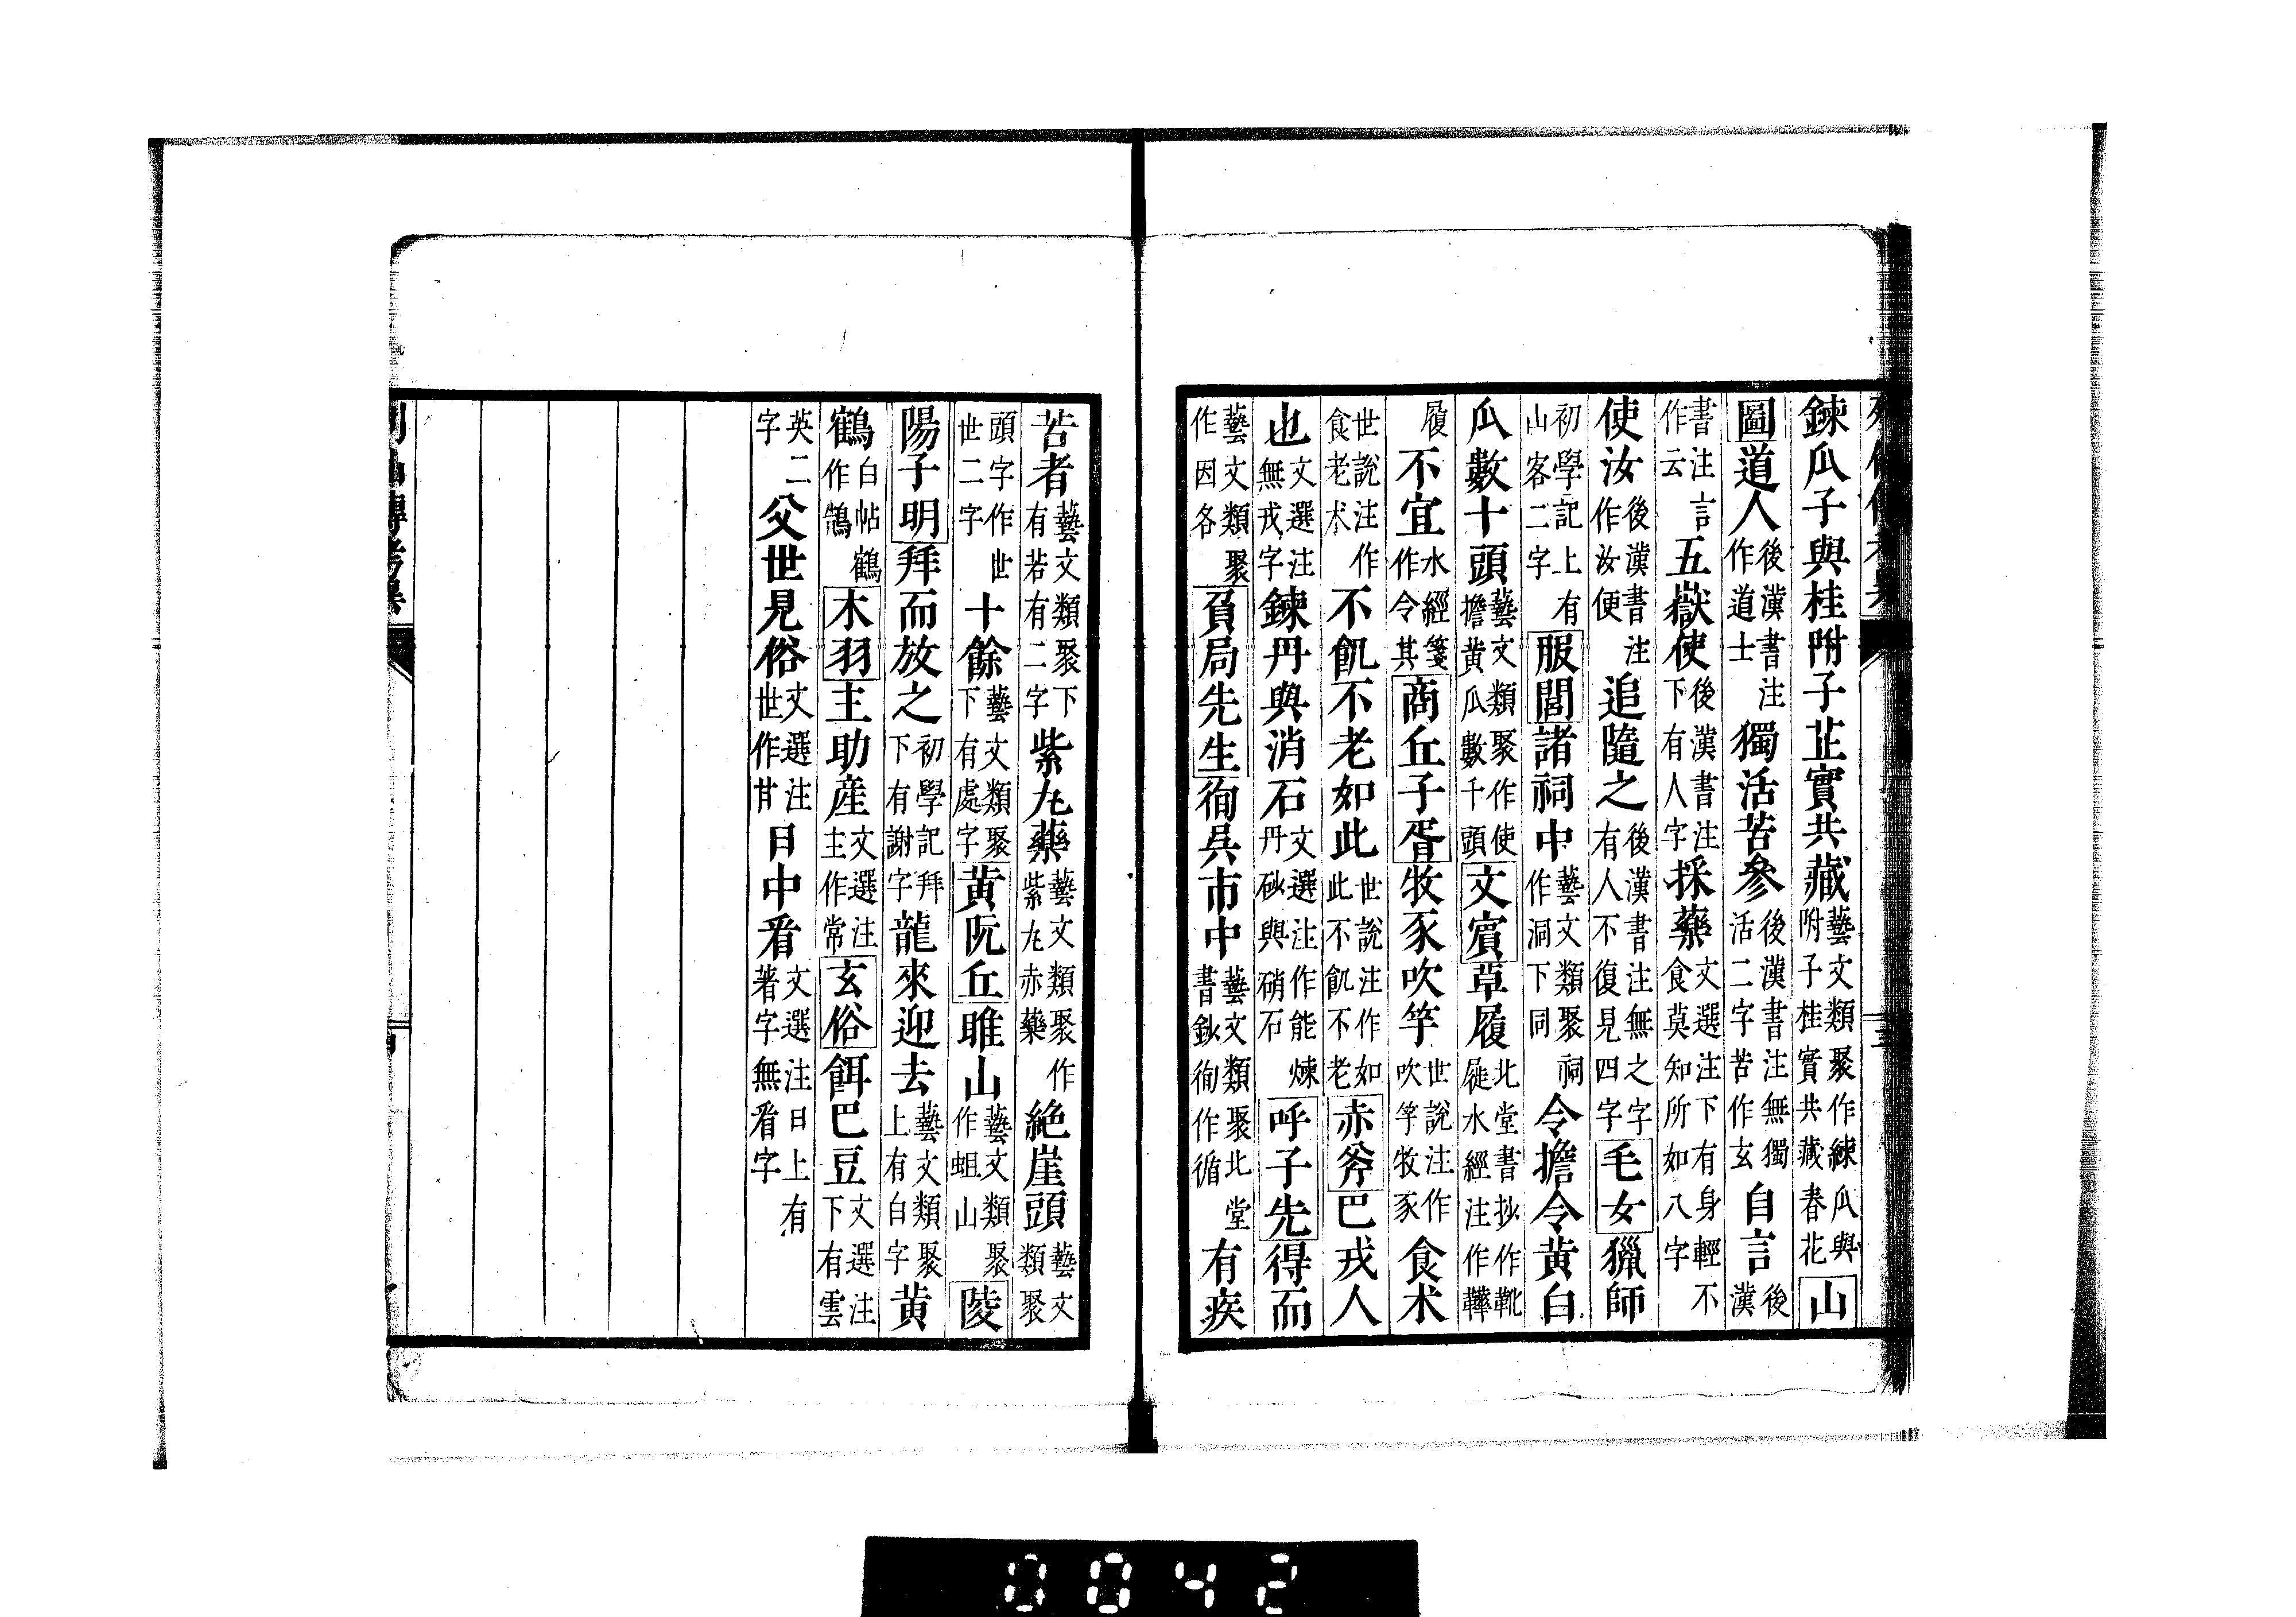 鍊瓜子與桂附子芷實共藏藝文類聚作練瓜與附子桂實共藏春花山
圖道人後漢書注作道士獨活苦參後漢書注無獨活二字苦作玄自言後漢
書注作云言五嶽使後漢書注下有人字採藥文選注下有身輕不食莫知所如八字
使汝後漢書注作汝便追隨之後漢書注無之字有人不復見四字毛女獵師
初學記上有山客二字服閭諸祠中藝文類聚祠作洞下同令擔令黃白
瓜數十頭藝文類聚作使擔黃瓜數千頭文賓草履北堂書抄作靴屣水經注作鞾
履不宜水經箋作令其商丘子胥牧豕吹竽世說注作吹竽牧豕食朮
世說注作食老朮不飢不老如此世說注作如此不飢不老赤斧巴戎人
也文選注無戎字鍊丹與消石文選注作能煉丹砂與硝石呼子先得而
藝文類聚作因各負局先生徇吳市中藝文類聚北堂書鈔徇作循有疾
苦者藝文類聚下有若有二字紫丸藥藝文類聚作紫丸赤藥絕崖頭藝文類聚
頭字作世世二字十餘藝文類聚下有處字黃阮丘睢山藝文類聚作蛆山陵
陽子明拜而放之初學記拜下有謝字龍來迎去藝文類聚上有白字黃
鶴白帖鶴作鵠木羽主助產文選注主作常玄俗餌巴豆文選注下有雲
英二字父世見俗文選注世作甘日中看文選注日上有著字無看字